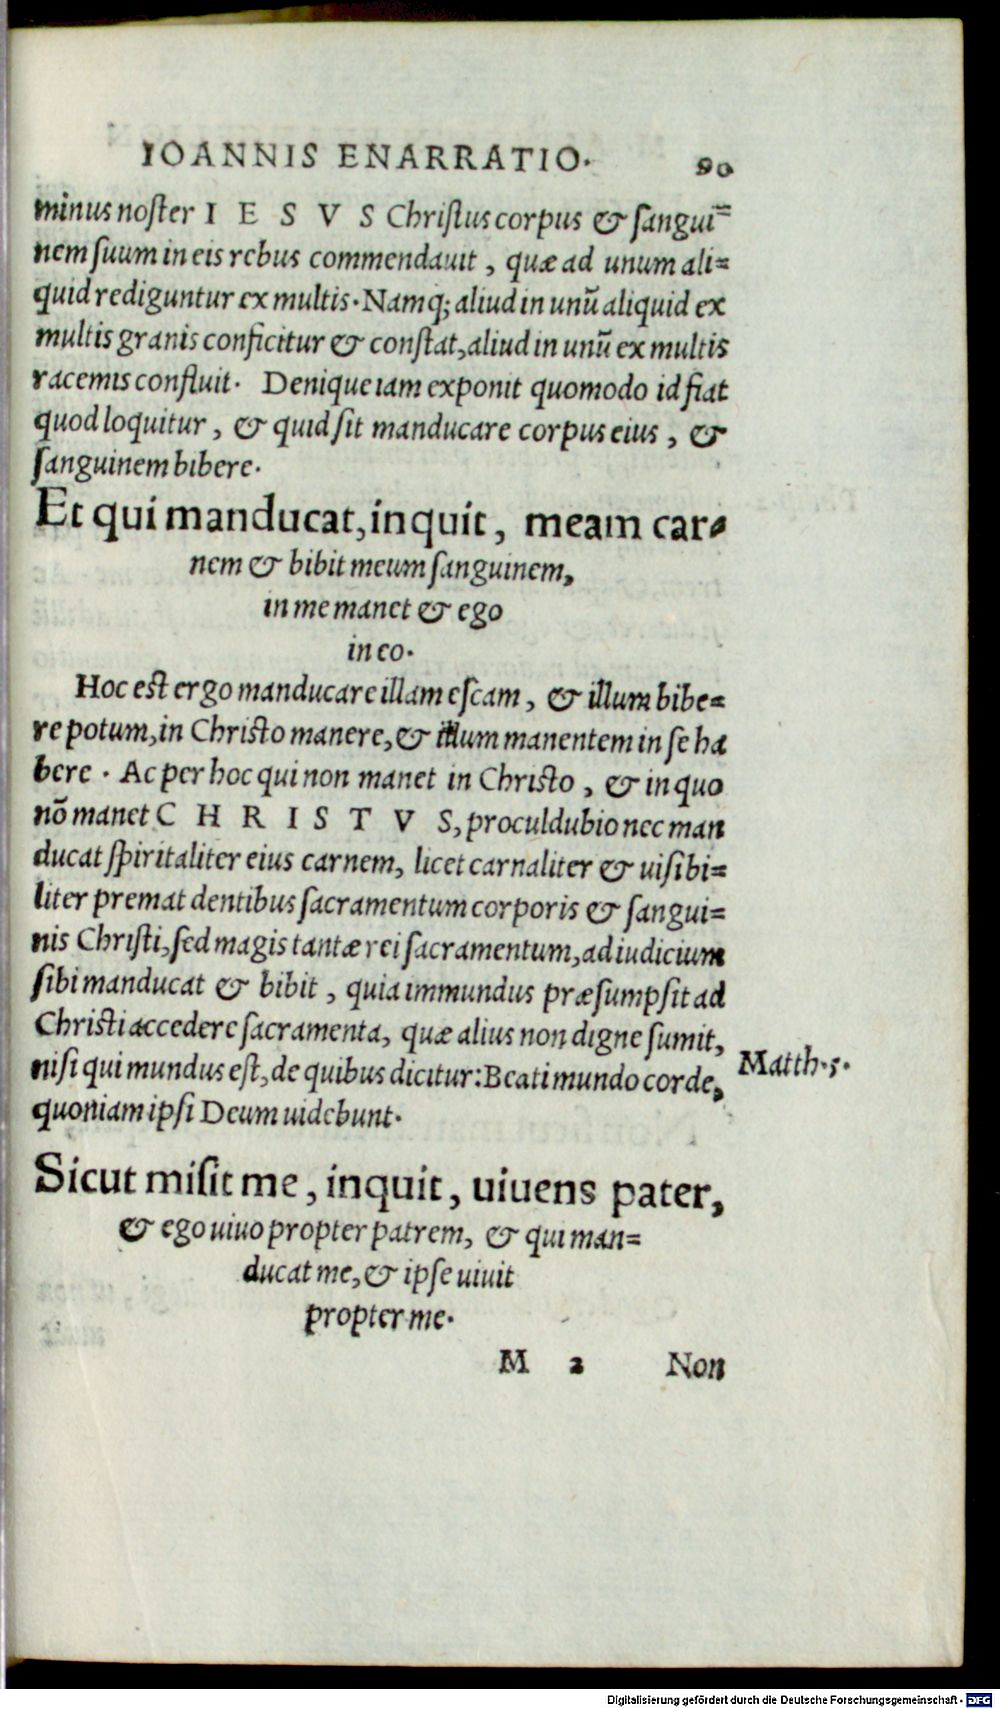 IOANNIS ENARRATIO. 90
minus noster I E S V S Christus corpus & sangui=
nem suum in eis rebus commendauit , quæ ad unum ali=
quid rediguntur ex multis. Namq; aliud in unū aliquid ex
multis granis conficitur & constat, aliud in unū ex multis
racemis confluit. Denique iam exponit quomodo id fiat
quod loquitur , & quid sit manducare corpus eius , &
sanguinem bibere.
Et qui manducat, inquit, meam car-
nem & bibit meum sanguinem,
in me manet & ego
in eo.
Hoc est ergo manducare illam escam , & illum bibe=
re potum, in Christo manere, & illum manentem in se ha
bere . Ac per hoc qui non manet in Christo , & in quo
nō manet C H R I S T V S, proculdubio nec man
ducat spiritaliter eius carnem, licet carnaliter & uisibi=
liter premat dentibus sacramentum corporis & sangui=
nis Christi, sed magis tantæ rei sacramentum, ad iudicium
sibi manducat & bibit , quia immundus præsumpsit ad
Christi accedere sacramenta, quæ alius non digne sumit,
nisi qui mundus est, de quibus dicitur: Beati mundo corde, Matth.5.
quoniam ipsi Deum uidebunt.
Sicut misit me , inquit , uiuens pater,
& ego uiuo propter patrem, & qui man=
ducat me, & ipse uiuit
propter me.
M 2 Non
Digitalisierung gefördert durch die Deutsche Forschungsgemeinschaft - DFG